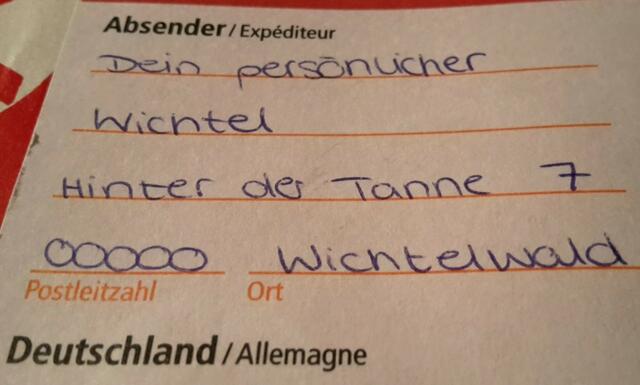 Absender / Expéditeur
Dein persönlicher
Wichtel
Hinter der Tanne 7
00000 Wichtelwald
Postleitzahl Ort
Deutschland / Allemagne